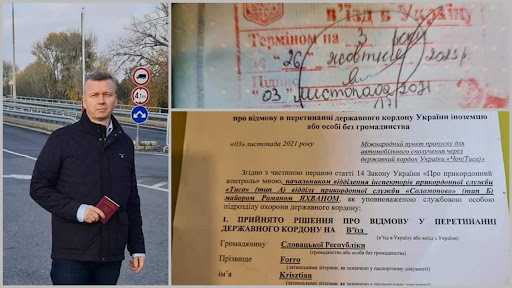 в'їзд в Україну
Терміном на 3 роки
"26" жовтня 2023р
"03" листопада 2021
про відмову в перетинанні державного кордону України іноземцю
або особі без громадянства
«03» листопада 2021 року
Міжнародний пункт пропуску для
автомобільного сполучення через
державний кордон України «Чоп(Тиса)»
Відповідно до частини першої статті 14 Закону України «Про прикордонний
контроль» мною, начальником відділення інспекторів прикордонної служби
«Тиса» (тип А) відділу прикордонної служби «Соломоново» (тип Б)
майором Романом ЯХВАНОМ, як уповноваженою службовою особою
підрозділу охорони державного кордону:
1. ПРИЙНЯТО РІШЕННЯ ПРО ВІДМОВУ У ПЕРЕТИНАННІ
ДЕРЖАВНОГО КОРДОНУ УКРАЇНИ НА В'їзд
(в'їзд в Україну або виїзд з України)
Громадянину Словацької Республіки
(громадянство або особа без громадянства)
Прізвище Forro
ім'я Krisztian